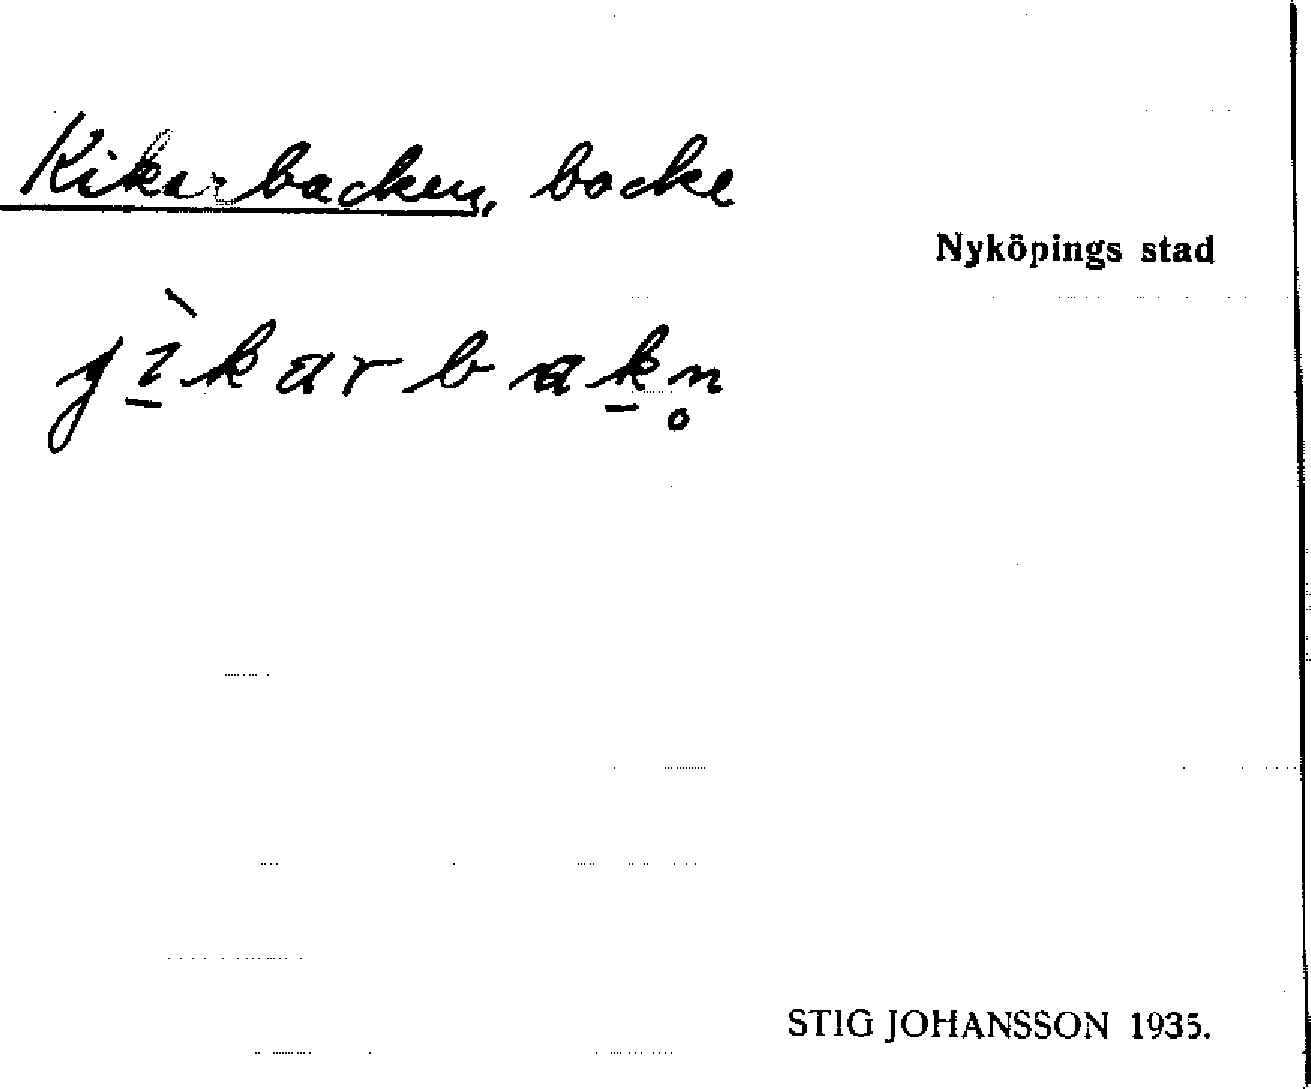 Kikarbacken, backe
Nyköpings stad
gìkarbakn̥
STIG JOHANSSON 1935.